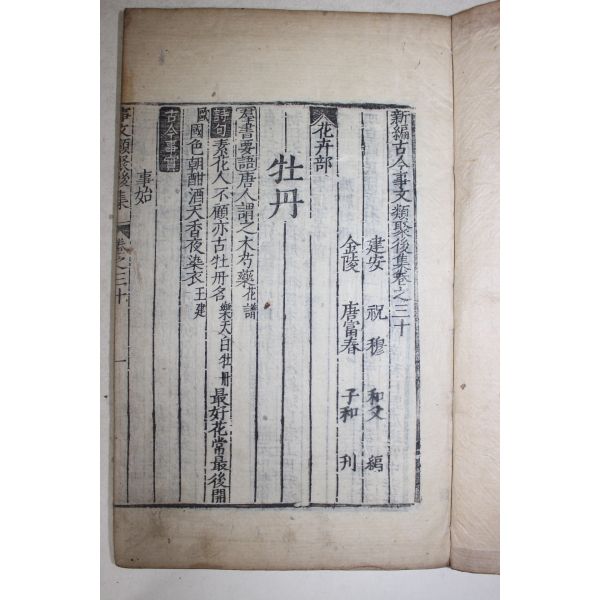 新編古今事文類聚後集卷之三十
建安 祝穆 和父 編
金陵 唐富春 子和 刊
花卉部
牡丹
羣書要語唐人謂之木芍藥花譜
詩句素花人不顧亦占牡丹名樂天白牡丹最好花常最後開
歐國色朝酣酒天香夜染衣王建
古今事實
事始
事文類聚後集 卷之三十 一